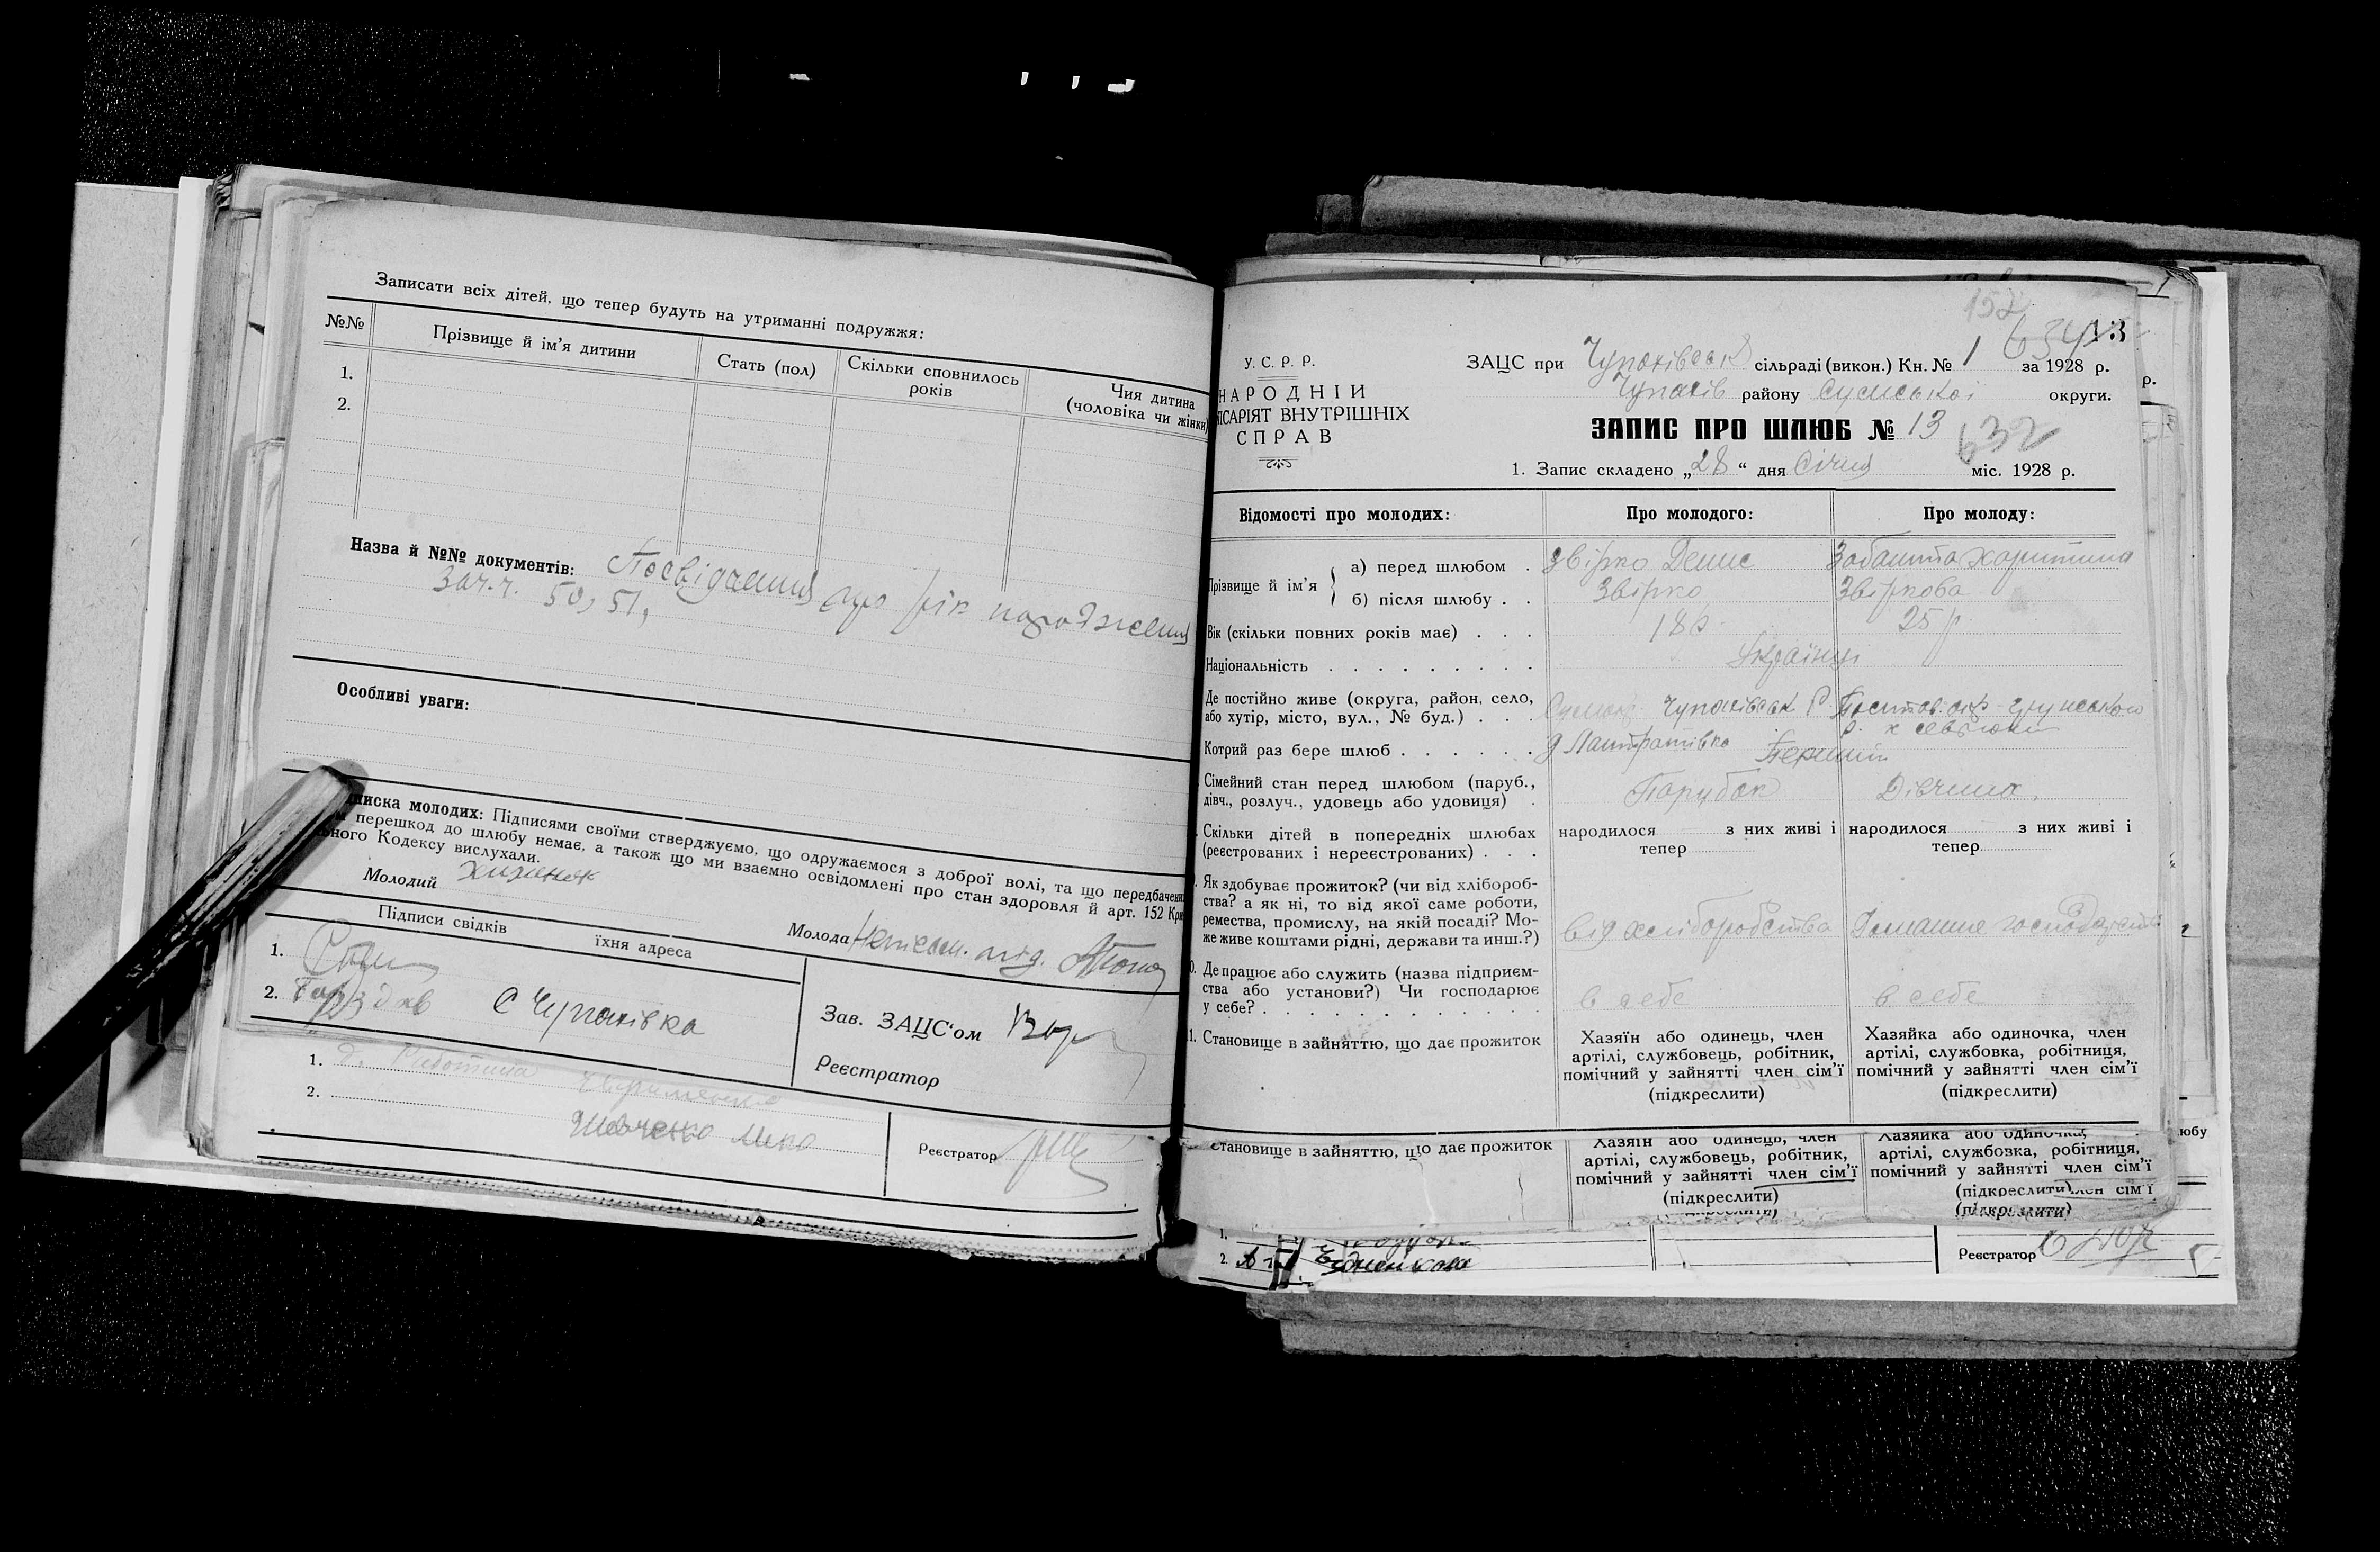 Записати всіх дітей, що тепер будуть на утриманні подружжя:
№№ Прізвище й ім'я дитини Стать (пол) Скільки сповнилось років Чия дитина (чоловіка чи жінки)
1.
2.
Назва й №№ документів: Посвідчення про рік народження
зач.ч. 50, 51,
Особливі уваги:
писка молодих: Підписями своїми стверджуємо, що одружаємося з доброї волі, та що передбачени
перешкод до шлюбу немає, а також що ми взаємно освідомлені про стан здоров'я й арт. 152 Кри
ного Кодексу вислухали.
Молодий
Молода
Підписи свідків їхня адреса
1.
2. С Чупахівка
Зав. ЗАЦС'ом
Реєстратор
1.
2. Шевченко
Реєстратор
152
634
13
У. С. Р. Р.
НАРОДНІЙ
ІСАРІЯТ ВНУТРІШНІХ
СПРАВ
ЗАЦС при Чупахівськ сільраді (викон.) Кн. № 1 за 1928 р.
Чупахів району Сумської округи.
ЗАПИС ПРО ШЛЮБ № 13
632
1. Запис складено „28“ дня Січня міс. 1928 р.
Відомості про молодих: Про молодого: Про молоду:
Прізвище й ім'я
а) перед шлюбом . Звірко Денис Забашта Харитина
б) після шлюбу . . Звірко Звіркова
Вік (скільки повних років має) . . . 18 р 25 р
Національність . . . . . . . . . Українці
Де постійно живе (округа, район, село,
або хутір, місто, вул., № буд.) . . . Чупахівськ Р.
Котрий раз бере шлюб . . . . . . Перший
Сімейний стан перед шлюбом (паруб.,
дівч., розлуч., удовець або удовиця) . Парубок Дівчина
Скільки дітей в попередніх шлюбах
(реєстрованих і нереєстрованих) . . .
народилося з них живі і
тепер
народилося з них живі і
тепер
Як здобуває прожиток? (чи від хлібороб-
ства? а як ні, то від якої саме роботи,
ремества, промислу, на якій посаді? Мо-
же живе коштами рідні, держави та инш.?)
від хліборобства
Домашнє господарство
0. Де працює або служить (назва підприєм-
ства або установи?) Чи господарює
у себе? . . . . . . . . . . . .
в себе
в себе
1. Становище в зайняттю, що дає прожиток
Хазяїн або одинець, член
артілі, службовець, робітник,
помічний у зайнятті член сім'ї
(підкреслити)
Хазяйка або одиночка, член
артілі, службовка, робітниця,
помічний у зайнятті член сім'ї
(підкреслити)
Становище в зайняттю, що дає прожиток
Хазяїн або одинець, член
артілі, службовець, робітник,
помічний у зайнятті член сім'ї
(підкреслити)
Хазяйка або одиночка,
артілі, службовка, робітниця,
помічний у зайнятті член сім'ї
(підкреслити)
член сім'ї
(підкреслити)
1.
2.
Реєстратор
р.
любу